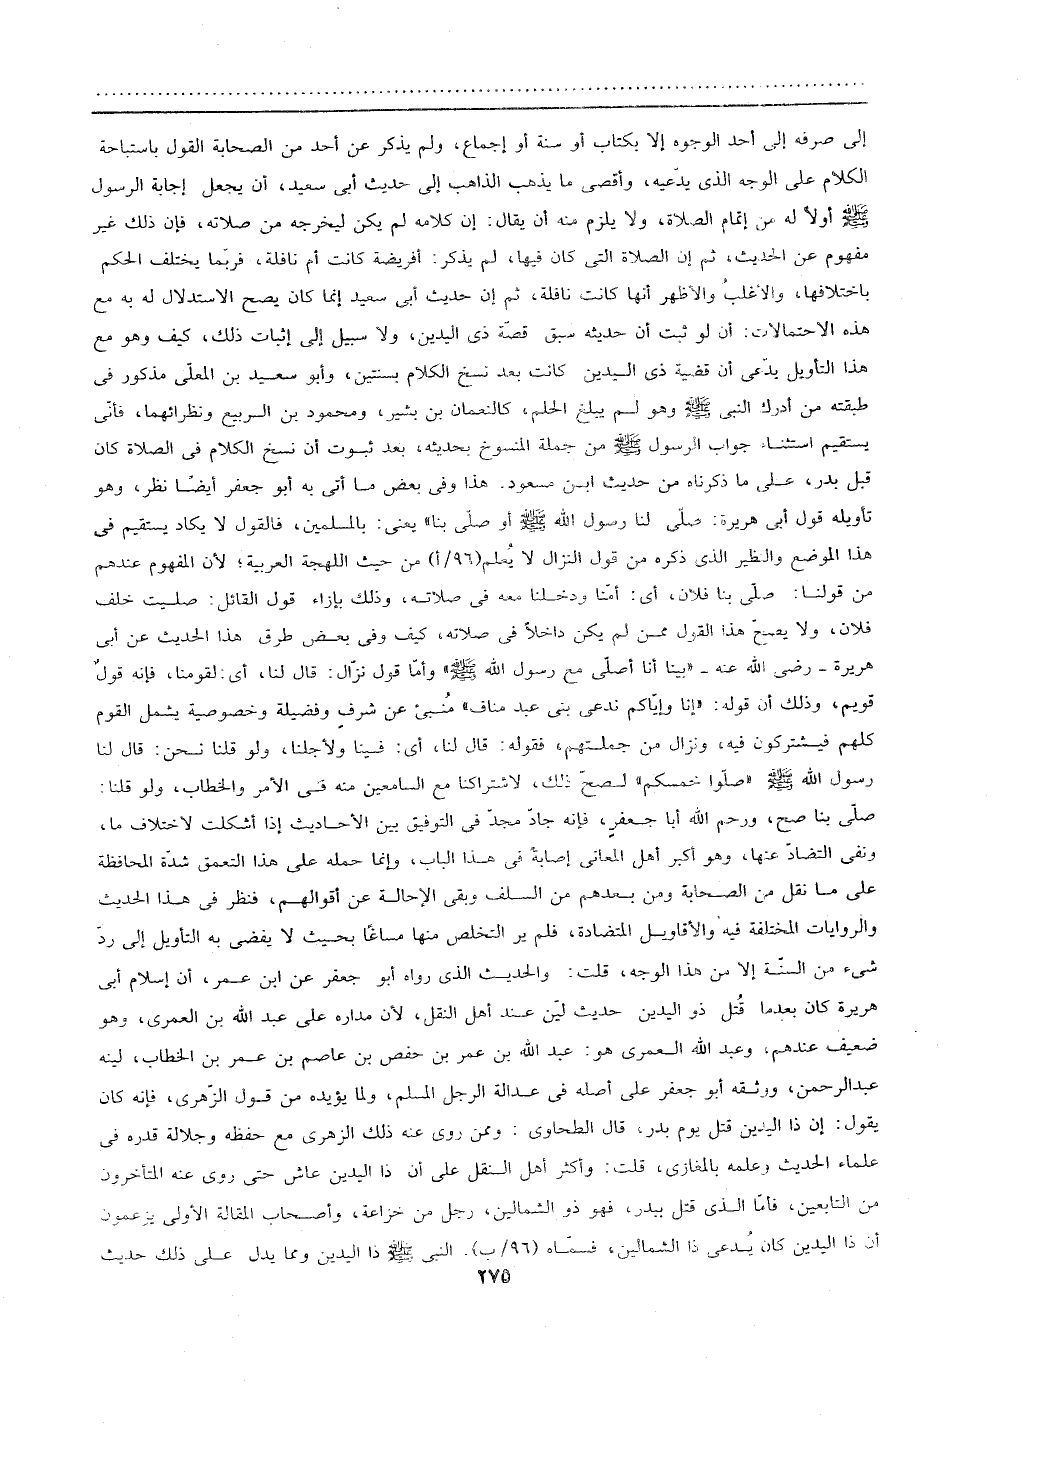 إلى صرفه إلى أحد الوجوه إلا بكتاب أو سنة أو إجماع، ولم يذكر عن أحد من الصحابة القول باستباحة
الكلام على الوجه الذى يدّعيه، وأقصى ما يذهب الذاهب إلى حديث أبى سعيد، أن يجعل إجابة الرسول
ﷺ أولاً له من إتمام الصلاة، ولا يلزم منه أن يقال: إن كلامه لم يكن ليخرجه من صلاته، فإن ذلك غير
مفهوم عن الحديث، ثم إن الصلاة التى كان فيها، لم يذكر: أفريضة كانت أم نافلة، فربّما يختلف الحكم
باختلافها، والأغلبُ والأظهر أنها كانت نافلة، ثم إن حديث أبى سعيد إنما كان يصح الاستدلال له به مع
هذه الاحتمالات: أن لو ثبت أن حديثه سبق قصّة ذى اليدين، ولا سبيل إلى إثبات ذلك، كيف وهو مع
هذا التأويل يدّعى أن قضية ذى اليدين كانت بعد نسخ الكلام بسنتين، وأبو سعيد بن المعلّى مذكور فى
طبقته من أدرك النبى ﷺ وهو لم يبلغ الحلم، كالنعمان بن بشير، ومحمود بن الربيع ونظرائهما، فأنّى
يستقيم استثناء جواب الرسول ﷺ من جملة المنسوخ بحديثه، بعد ثبوت أن نسخ الكلام فى الصلاة كان
قبل بدر، على ما ذكرناه من حديث ابن مسعود. هذا وفى بعض ما أتى به أبو جعفر أيضًا نظر، وهو
تأويله قول أبى هريرة: صلّى لنا رسول الله ﷺ أو صلّى بنا» يعنى: بالمسلمين، فالقول لا يكاد يستقيم فى
هذا الموضع والنظير الذى ذكره من قول النزال لا يُعلم(٩٦/أ) من حيث اللهجة العربية؛ لأن المفهوم عندهم
من قولنا: صلّى بنا فلان، أى: أمّنا ودخلنا معه فى صلاته، وذلك بإزاء قول القائل: صليت خلف
فلان، ولا يصحّ هذا القول ممن لم يكن داخلاً فى صلاته، كيف وفى بعض طرق هذا الحديث عن أبى
هريرة - رضى الله عنه - «بينا أنا أصلّى مع رسول الله ﷺ» وأمّا قول نزّال: قال لنا، أى: لقومنا، فإنه قولٌ
قويم، وذلك أن قوله: «إنا وإيّاكم ندعى بنى عبد مناف» مُنبئ عن شرفٍ وفضيلة وخصوصية يشمل القوم
كلهم فيشتركون فيه، ونزال من جملتهم، فقوله: قال لنا، أى: فينا ولأجلنا، ولو قلنا نحن: قال لنا
رسول الله ﷺ «صلّوا خمسكم» لصحّ ذلك، لاشتراكنا مع السامعين منه فى الأمر والخطاب، ولو قلنا:
صلّى بنا صح، ورحم الله أبا جعفرٍ، فإنه جادّ مجدّ فى التوفيق بين الأحاديث إذا أشكلت لاختلاف ما،
ونفى التضادّ عنها، وهو أكبر أهل المعانى إصابةً فى هذا الباب، وإنما حمله على هذا التعمق شدّة المحافظة
على ما نقل من الصحابة ومن بعدهم من السلف وبقى الإحالة عن أقوالهم، فنظر فى هذا الحديث
والروايات المختلفة فيه والأقاويل المتضادة، فلم ير التخلص منها مساغًا بحيث لا يفضى به التأويل إلى ردّ
شىء من السنّة إلا من هذا الوجه، قلت: والحديث الذى رواه أبو جعفر عن ابن عمر، أن إسلام أبى
هريرة كان بعدما قُتل ذو اليدين حديث ليّن عند أهل النقل، لأن مداره على عبد الله بن العمرى، وهو
ضعيف عندهم، وعبد الله العمرى هو: عبد الله بن عمر بن حفص بن عاصم بن عمر بن الخطاب، لينه
عبدالرحمن، ووثقه أبو جعفر على أصله فى عدالة الرجل المسلم، ولما يؤيده من قول الزّهرى، فإنه كان
يقول: إن ذا اليدين قتل يوم بدر، قال الطحاوى : وممن روى عنه ذلك الزهرى مع حفظه وجلالة قدره فى
علماء الحديث وعلمه بالمغازى، قلت: وأكثر أهل النقل على أن ذا اليدين عاش حتى روى عنه المتأخرون
من التابعين، فأمّا الذى قتل ببدر، فهو ذو الشمالين، رجل من خزاعة، وأصحاب المقالة الأولى يزعمون
أن ذا اليدين كان يُدعى ذا الشمالين، فسمّاه (٩٦/ب). النبى ﷺ ذا اليدين ومما يدل على ذلك حديث
٢٧٥